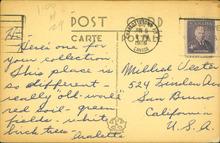 1-09
POST CARD
CARTE POSTALE
Here's one for
your collection.
This place is
so different -
really old-world
red soil - green
fields - white
birch trees
Mildred Vester
524 Linden Ave
San Bruno
California
U.S.A.